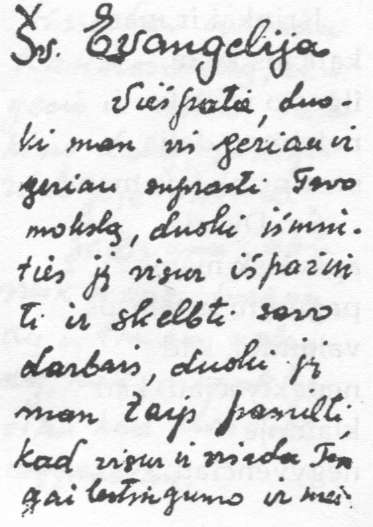 Šv. Evangelija
Viešpatie, duo-
ki man vis geriau ir
geriau suprasti Tavo
mokslą, duoki išmin-
ties jį visur išpažin
ti ir skelbti savo
darbais, duoki jį
man taip pamilti,
kad visur ir visada
gailestingumo ir mei-